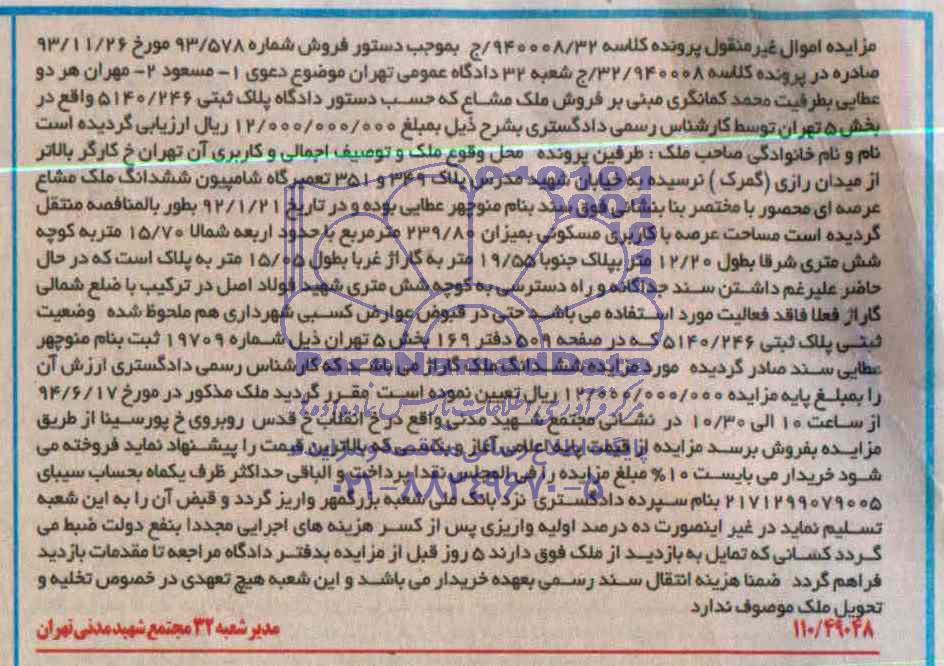 مزایده اموال غیرمنقول پرونده کلاسه ۹۴۰۰۰۸/۳۲/ج بموجب دستور فروش شماره ۹۳/۵۷۸ مورخ ۹۳/۱۱/۲۶
صادره در پرونده کلاسه ۳۲/۹۴۰۰۰۸/ج شعبه ۳۲ دادگاه عمومی تهران موضوع دعوی ۱- مسعود ۲- مهران هر دو
عطایی بطرفیت محمد کمانگری مبنی بر فروش ملک مشاع که حسب دستور دادگاه پلاک ثبتی ۵۱۴۰/۲۴۶ واقع در
بخش ۵ تهران توسط کارشناس رسمی دادگستری بشرح ذیل بمبلغ ۱۲/۰۰۰/۰۰۰/۰۰۰ ریال ارزیابی گردیده است
نام و نام خانوادگی صاحب ملک : طرفین پرونده محل وقوع ملک و توصیف اجمالی و کاربری آن تهران خ کارگر بالاتر
از میدان رازی (گمرک) نرسیده به خیابان شهید مدرس پلاک ۳۴۹ و ۳۵۱ تعمیرگاه شامپیون ششدانگ ملک مشاع
عرصه ای محصور با مختصر بنا بنشانی فوق سند بنام منوچهر عطایی بوده و در تاریخ ۹۲/۱/۲۱ بطور بالمناقصه منتقل
گردیده است مساحت عرصه با کاربری مسکونی بمیزان ۲۳۹/۸۰ مترمربع با حدود اربعه شمالا ۱۵/۷۰ متر به کوچه
شش متری شرقا بطول ۱۲/۲۰ متر بپلاک جنوبا ۱۹/۵۵ متر به گاراژ غربا بطول ۱۵/۰۵ متر به پلاک است که در حال
حاضر علیرغم داشتن سند جداگانه و راه دسترسی به کوچه شش متری شهید فولاد اصل در ترکیب با ضلع شمالی
گاراژ فعلا فاقد فعالیت مورد استفاده می باشد حتی در قبوض عوارض کسبی شهرداری هم ملحوظ شده وضعیت
ثبتی پلاک ثبتی ۵۱۴۰/۲۴۶ که در صفحه ۵۰۹ دفتر ۱۶۹ بخش ۵ تهران ذیل شماره ۱۹۷۰۹ ثبت بنام منوچهر
عطایی سند صادر گردیده مورد مزایده ششدانگ ملک گاراژ می باشد که کارشناس رسمی دادگستری ارزش آن
را بمبلغ پایه مزایده ۱۲/۰۰۰/۰۰۰/۰۰۰ ریال تعیین نموده است مقرر گردید ملک مذکور در مورخ ۹۴/۶/۱۷
از ساعت ۱۰ الی ۱۰/۳۰ در نشانی مجتمع شهید مدنی واقع در خ انقلاب خ قدس روبروی خ پورسینا از طریق
مزایده بفروش برسد مزایده از قیمت پایه اعلامی آغاز و بکسی که بالاترین قیمت را پیشنهاد نماید فروخته می
شود خریدار می بایست ۱۰% مبلغ مزایده را فی المجلس نقدا پرداخت و الباقی حداکثر ظرف یکماه بحساب سیبای
۲۱۷۱۲۹۹۰۷۹۰۰۵ بنام سپرده دادگستری نزد بانک ملی شعبه بزرگمهر واریز گردد و قبض آن را به این شعبه
تسلیم نماید در غیر اینصورت ده درصد اولیه واریزی پس از کسر هزینه های اجرایی مجددا بنفع دولت ضبط می
گردد کسانی که تمایل به بازدید از ملک فوق دارند ۵ روز قبل از مزایده بدفتر دادگاه مراجعه تا مقدمات بازدید
فراهم گردد ضمنا هزینه انتقال سند رسمی بعهده خریدار می باشد و این شعبه هیچ تعهدی در خصوص تخلیه و
تحویل ملک موصوف ندارد
۱۱۰/۴۹۰۴۸ مدیر شعبه ۳۲ مجتمع شهید مدنی تهران
ParsNamadData
۰۲۱-۸۸۳۴۹۶۷۰-۵